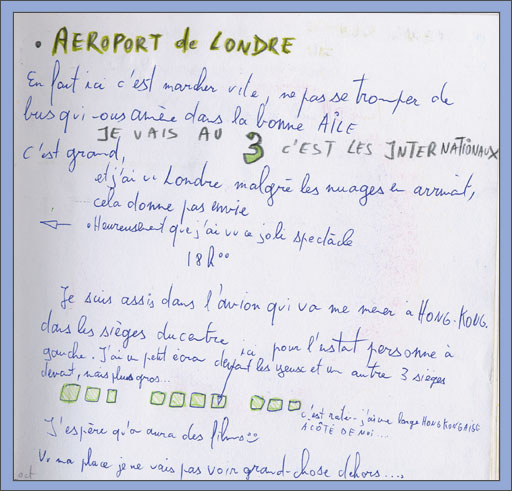 • AEROPORT de LONDRE
En fait ici c'est marcher vite, ne pas se tromper de
bus qui vous amène dans la bonne AÎLE
JE VAIS AU 3 C'EST LES INTERNATIONAUX
c'est grand,
et j'ai vu Londre, malgré les nuages en arrivant,
cela donne pas envie
Heureusement que j'ai vu ce joli spectacle
18h00
Je suis assis dans l'avion qui va me mener à HONG-KONG.
dans les sièges du centre, ici pour l'instat personne à
gauche. J'ai un petit écran devant les yeux et un autre 3 sièges
devant, mais plus gros...
c'est raté - j'ai une HONGKONGAISE
A CÔTÉ DE MOI...
J'espère qu'on aura des films
Vu ma place je ne vais pas voir grand-chose dehors....